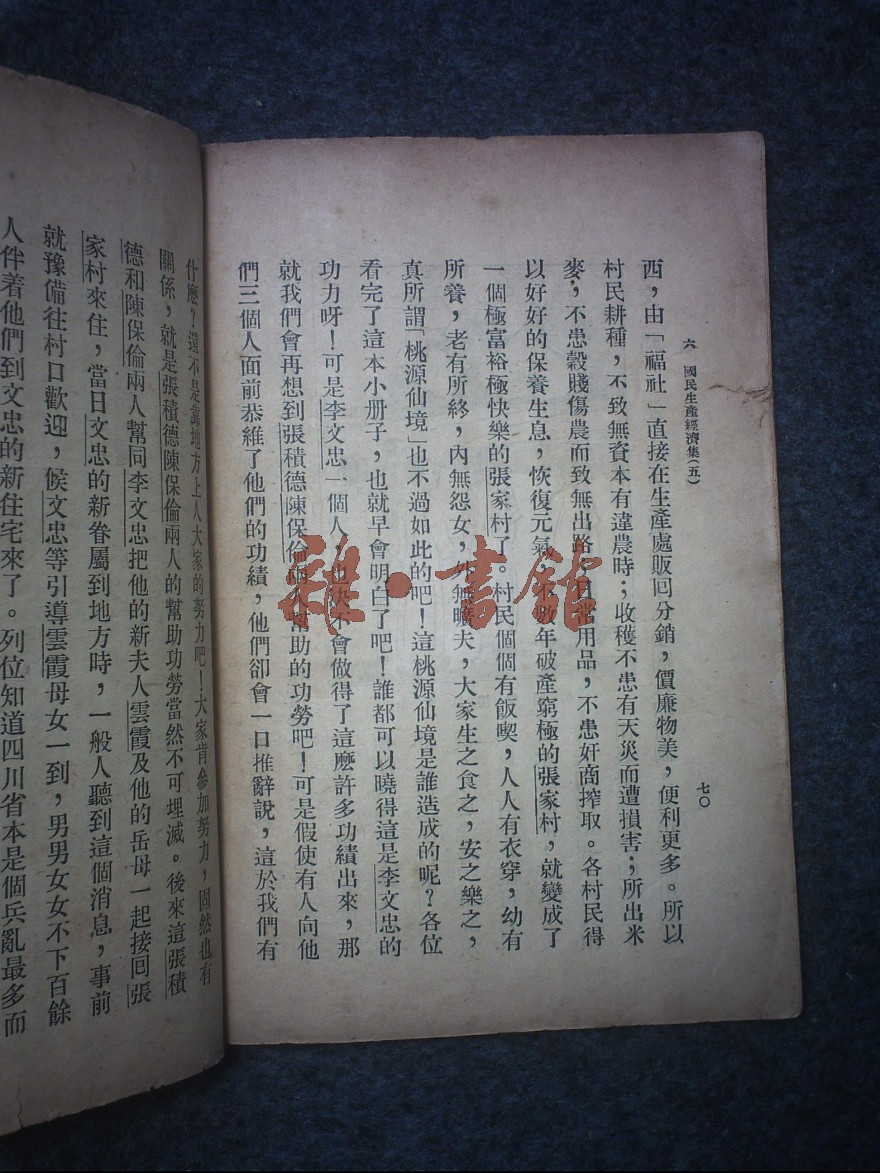 六　國民生產經濟集(五)
七〇
西，由「福社」直接在生產處販囘分銷，價廉物美，便利更多。所以
村民耕種，不致無資本有違農時；收穫不患有天災而遭損害；所出米
麥，不患穀賤傷農而致無出路，日常用品，不患奸商搾取。各村民得
以好好的保養生息，恢復元氣，不數年破產窮極的張家村，就變成了
一個極富裕極快樂的張家村了。村民個個有飯喫，人人有衣穿，幼有
所養，老有所終，內無怨女，外無曠夫，大家生之食之，安之樂之，
真所謂「桃源仙境」也不過如此的吧！這桃源仙境是誰造成的呢？各位
看完了這本小册子，也就早會明白了吧！誰都可以曉得這是李文忠的
功力呀！可是李文忠一個人，也決不會做得了這麽許多功績出來，那
就我們會再想到張積德陳保倫兩人幫助的功勞吧！可是假使有人向他
們三個人面前恭維了他們的功績，他們卻會一口推辭說，這於我們有
什麽？還不是靠地方上人大家的努力吧！大家肯參加努力，固然也有
關係，就是張積德陳保倫兩人的幫助功勞當然不可埋滅。後來這張積
德和陳保倫兩人幫同李文忠把他的新夫人雲霞及他的岳母一起接囘張
家村來住，當日文忠的新眷屬到地方時，一般人聽到這個消息，事前
就豫備往村口歡迎，候文忠等引導雲霞母女一到，男男女女不下百餘
人伴着他們到文忠的新住宅來了。列位知道四川省本是個兵亂最多而
雜·書館